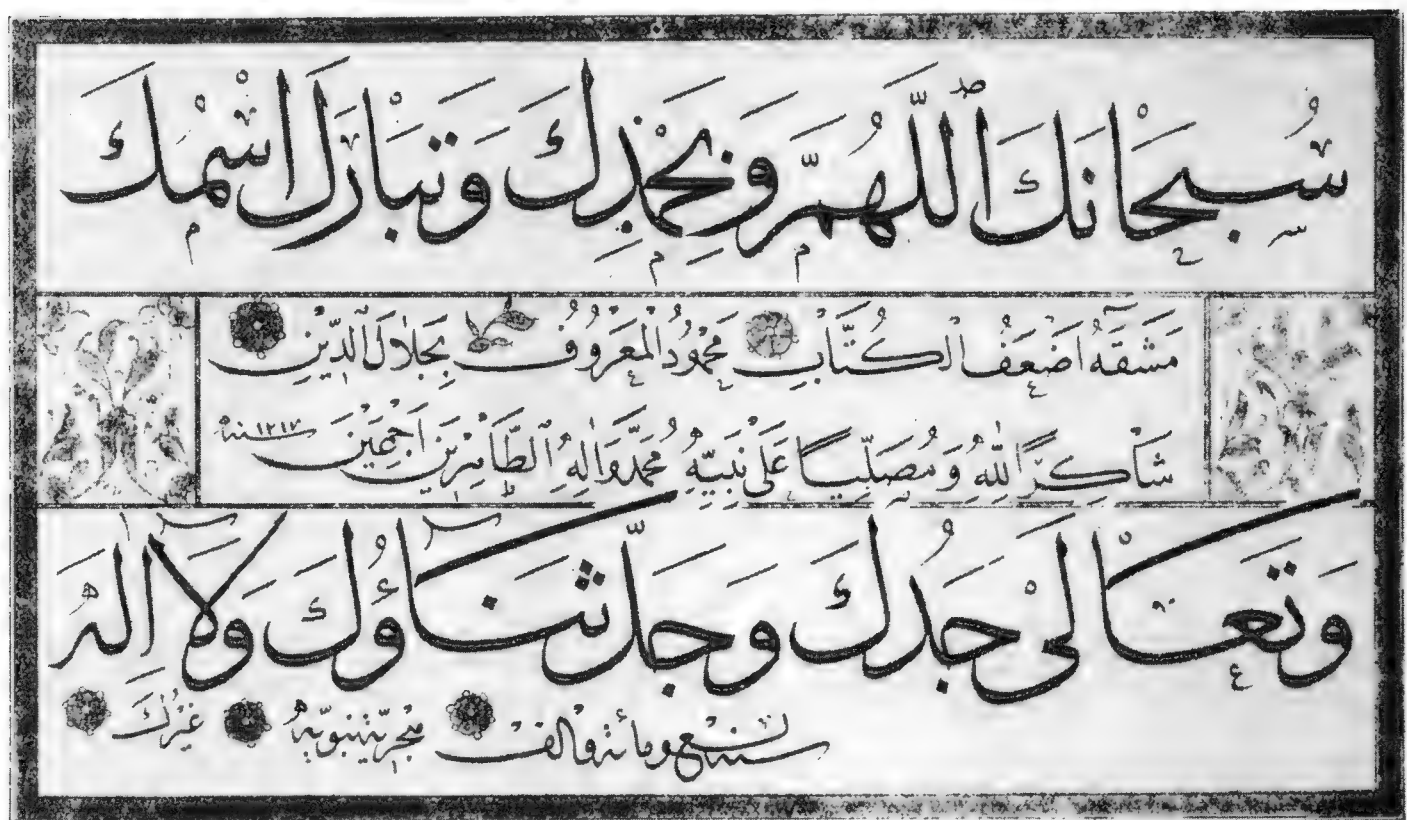 سُبْحَانَكَ اَللّٰهُمَّ وَبِحَمْدِكَ وَتَبَارَكَ اسْمُكَ
مَشَقَهُ اَضْعَفُ الْكُتَّابِ مَحْمُودُ الْمَعْرُوفُ بِجَلَالِ الدِّينِ
شَاكِرًا لِلّٰهِ وَمُصَلِّيًا عَلٰى نَبِيِّهِ مُحَمَّدٍ وَاٰلِهِ الطَّاهِرِينَ اَجْمَعِينَ سنة ١٢١٧
وَتَعَالٰى جَدُّكَ وَجَلَّ ثَنَاؤُكَ وَلَا اِلٰهَ
غَيْرُكَ
سنة تسع ومائة والف هجرية نبوية